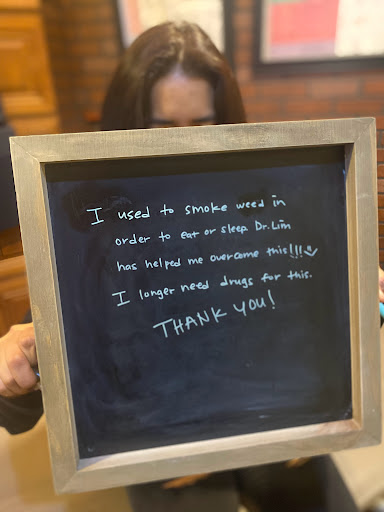 I used to smoke weed in
order to eat or sleep. Dr. Lim
has helped me overcome this!!!
I longer need drugs for this.
THANK YOU!